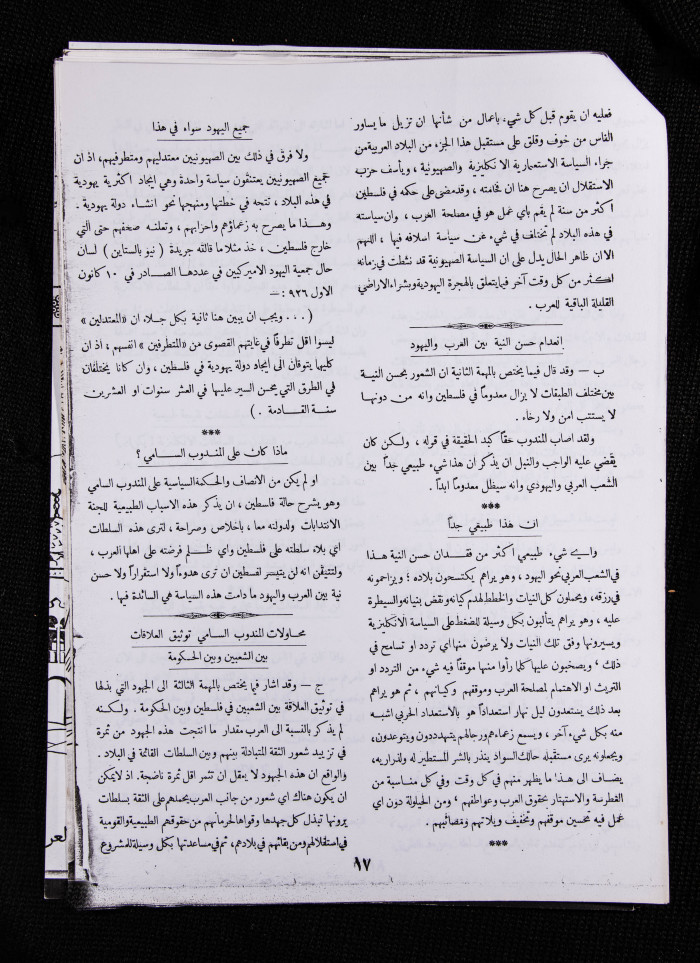 فعليه ان يقوم قبل كل شيء باعمال من شأنها ان تزيل ما يساور
الناس من خوف وقلق على مستقبل هذا الجزء من البلاد العربية من
جراء السياسة الاستعمارية الانكليزية والصهيونية ، ويأسف حزب
الاستقلال ان يصرح هنا ان فخامته ، وقد مضى على حكمه في فلسطين
أكثر من سنة لم يقم باي عمل هو في مصلحة العرب ، وان سياسته
في هذه البلاد لم تختلف في شيء عن سياسة اسلافه فيها ، اللهم
الا ان ظاهر الحال يدل على ان السياسة الصهيونية قد نشطت في زمانه
اكثر من كل وقت آخر فيما يتعلق بالهجرة اليهودية وبشراء الاراضي
القليلة الباقية للعرب .
إنعدام حسن النية بين العرب واليهود
ب — وقد قال فيما يختص بالمهمة الثانية ان الشعور بحسن النيـة
بين مختلف الطبقات لا يزال معدوماً في فلسطين وانه من دونهـا
لا يستتب امن ولا رخاء .
ولقد اصاب المندوب حقاً كبد الحقيقة في قوله ، ولكن كان
يقضي عليه الواجب والنبل ان يذكر ان هذا شيء طبيعي جداً بين
الشعب العربي واليهودي وانه سيظل معدوماً ابداً .
***
ان هذا طبيعي جداً
واي شيء طبيعي أكثر من فقـدان حسن النية هـذا
في الشعب العربي نحو اليهود ، وهو يراهم يكتسحون بلاده ؛ ويزاحمونه
في رزقه ، ويحملون كل النيات والخطط لهدم كيانه ونقض بنيانه والسيطرة
عليه ، وهو يراهم يتألبون بكل وسيلة للضغط على السياسة الانكليزية
ويسيرونها وفق تلك النيات ولا يرضون منها اي تردد او تسامح في
ذلك ؛ ويصخبون عليها كلما رأوا منها موقفاً فيه شيء من التردد او
التريث او الاهتمام لمصلحة العرب وموقفهم وكيانهم ، ثم هو يراهم
بعد ذلك يستعدون ليل نهار استعداداً هو بالاستعداد الحربي اشبـه
منه بكل شيء آخر ، ويسمع زعماءهم ورجالهم يتهددون ويتوعدون،
ويجعلونه يرى مستقبله حالك السواد ينذر بالشر المستطير له ولذراريه،
يضاف الى هذا ما يظهر منهم في كل وقت وفي كل مناسبة من
الغطرسة والاستهتار بحقوق العرب وعواطفهم ، ومن الحيلولة دون اي
عمل فيه تحسين موقفهم وتخفيف ويلاتهم ومصائبهم .
***
جميع اليهود سواء في هذا
ولا فرق في ذلك بين الصهيونيين معتدليهم ومتطرفيهم، اذ ان
جميع الصهيونيين يعتنقون سياسة واحدة وهي ايجاد اكثرية يهودية
في هذه البلاد ، تتجه في خطتها ومنهجها نحو انشـاء دولة يهودية .
وهـذا ما يصرح به زعماؤهم واحزابهم ، وتعلنـه صحفهم حتى التي
خارج فلسطين ، خذ مثلا ما قالته جريدة ( نيو بالستاين ) لسان
حال جمعية اليهود الاميركيين في عددها الصـادر في ١٠ كانون
الاول ٩٢٦ :—
( . . . ويجب ان يبين هنا ثانية بكل جـلاء ان «المعتدلين »
ليسوا اقل تطرفاً في غايتهم القصوى من «المتطرفين » انفسهم ، اذ ان
كليهما يتوقان الى ايجاد دولة يهودية في فلسطين ، وان كانا يختلفان
في الطرق التي يحسن السير عليها في العشر سنوات او العشرين
سنـة القـادمـة . )
***
ماذا كان على المندوب السـامي ؟
او لم يكن من الانصاف والحكمة السياسية على المندوب السامي
وهو يشرح حالة فلسطين ، ان يذكر هذه الاسباب الطبيعية للجنة
الانتدابات ولدولته معا ، باخلاص وصراحة ، لترى هذه السلطات
اي بلاء سلطته على فلسطين واي ظـلم فرضته على اهلها العرب ،
ولتتيقن انه لن يتيسر لفسطين ان ترى هدوءاً ولا استقراراً ولا حسن
نية بين العرب واليهود ما دامت هذه السياسة هي السائدة فيها .
محاولات المندوب السـامي توثيق العلاقات
بين الشعبين وبين الحكومة
ج — وقد اشار في يختص بالمهمة الثالثة الى الجهود التي بذلها
في توثيق العلاقة بين الشعبين في فلسطين وبين الحكومة . ولـكنـه
لم يذكر بالنسبة الى العرب مقدار ما انتجت هذه الجهود من ثمرة
في تزييد شعور الثقة المتبادلة بينهم وبين السلطات القائمة في البلاد .
والواقع ان هذه الجهود لا يعقل ان تثمر اقل ثمرة ناضجة. اذ لا يمكن
ان يكون هناك اي شعور من جانب العرب يحملهم على الثقة بسلطات
يرونها تبذل كل جهدها وقواها لحرمانهم من حقوقهم الطبيعية والقومية
في استقلالهم ومن بقائهم في بلادهم، ثم في مساعدتها بكل وسيلة للمشروع
١٧